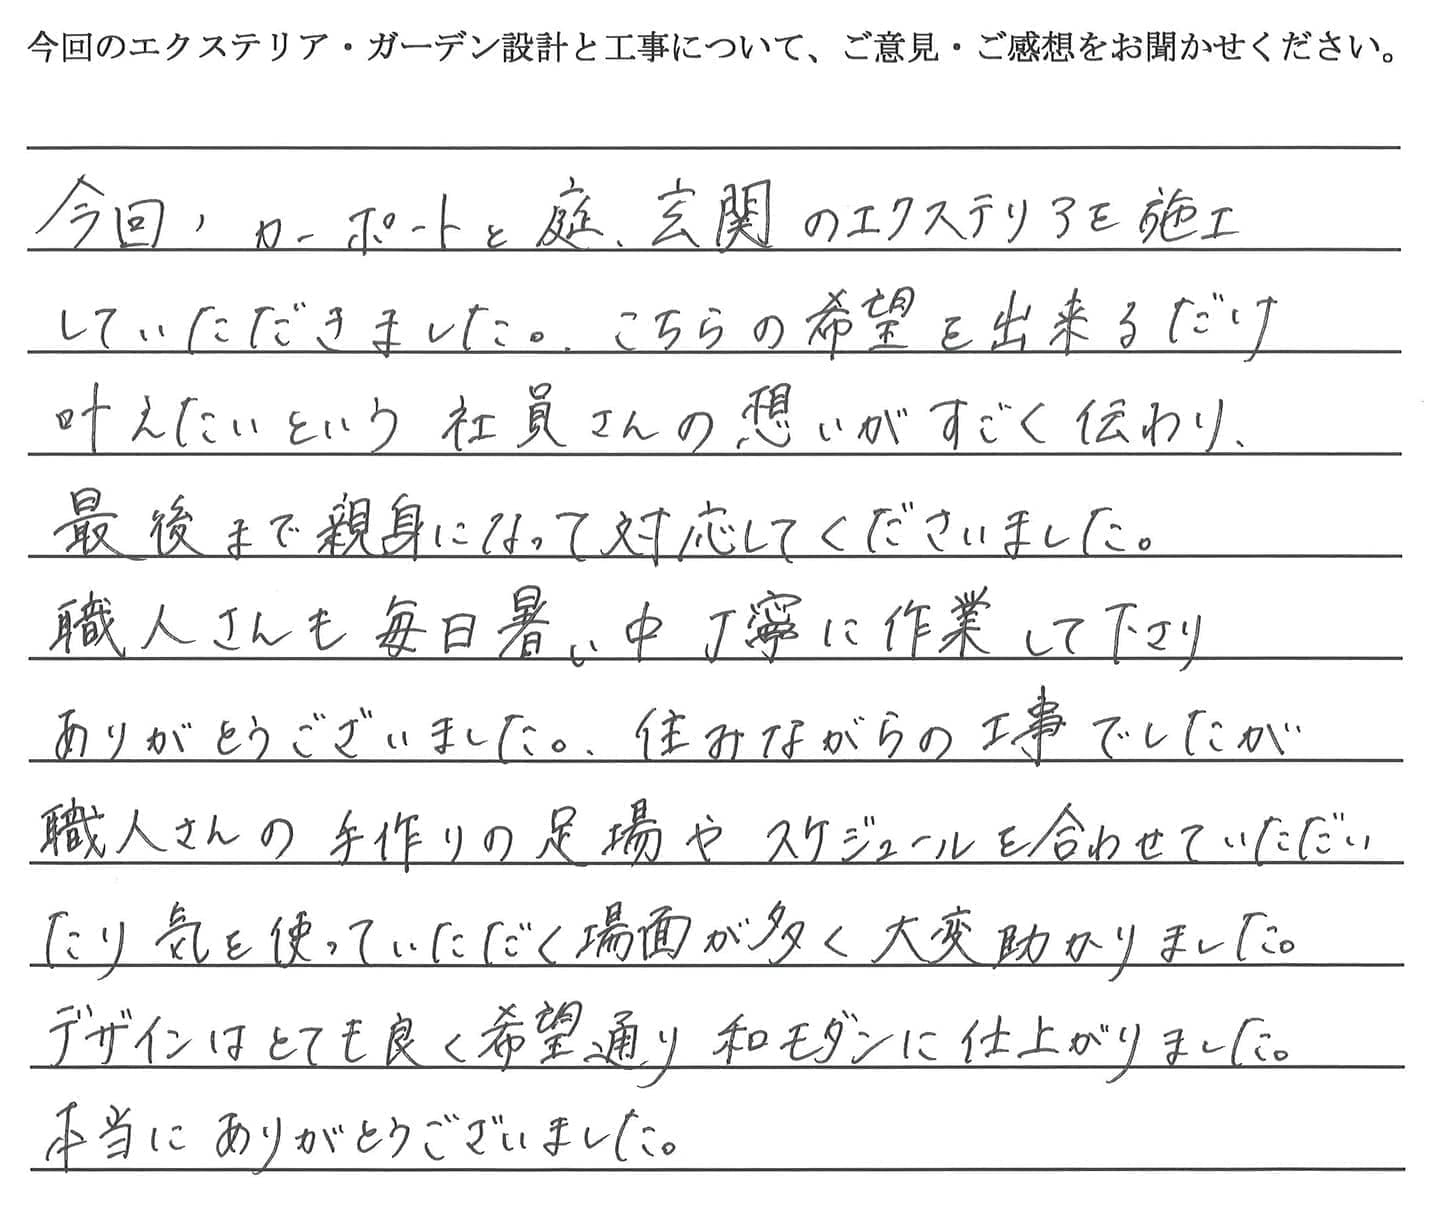 今回のエクステリア・ガーデン設計と工事について、ご意見・ご感想をお聞かせください。
今回、カーポートと庭、玄関のエクステリアを施工
していただきました。こちらの希望を出来るだけ
叶えたいという社員さんの想いがすごく伝わり、
最後まで親身になって対応してくださいました。
職人さんも毎日暑い中丁寧に作業して下さり
ありがとうございました。住みながらの工事でしたが
職人さんの手作りの足場やスケジュールを合わせていただい
たり気を使っていただく場面が多く大変助かりました。
デザインはとても良く希望通り和モダンに仕上がりました。
本当にありがとうございました。